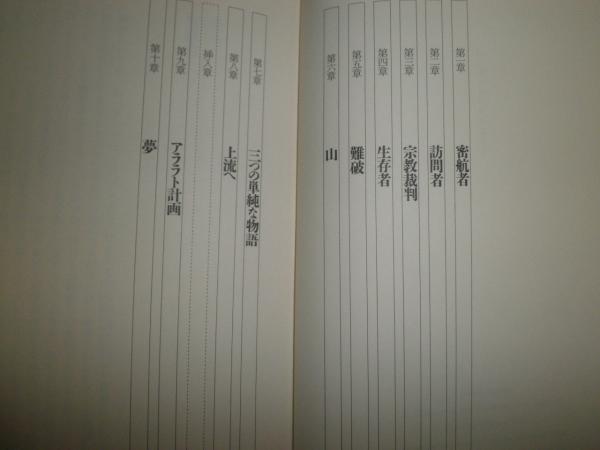 第一章 密航者
第二章 訪問者
第三章 宗教裁判
第四章 生存者
第五章 難破
第六章 山
第七章 三つの単純な物語
第八章 上流へ
挿入章
第九章 アララト計画
第十章 夢